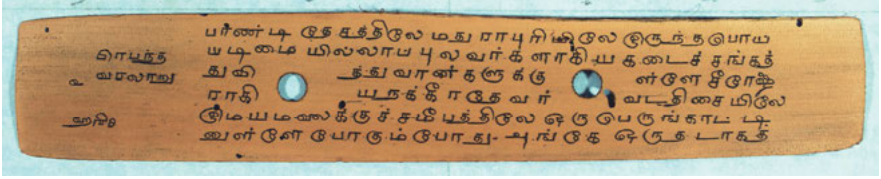 பாண்டி தேசத்திலே மதுராபுரியிலே இருந்தபொய
யடிமை யில்லாப புலவர்களாகிய கடைச் சங்கத்
வரலாறு
துவி த்துவான்களுக்கு ள்ளே
ராகி யநக்கீரதேவர் வடதிசையிலே
இமயமலைக்குச் சமீபத்திலே ஒரு பெருங்காட்டி
னுள்ளே போகும்போது- அங்கே ஒரு தடாகத்